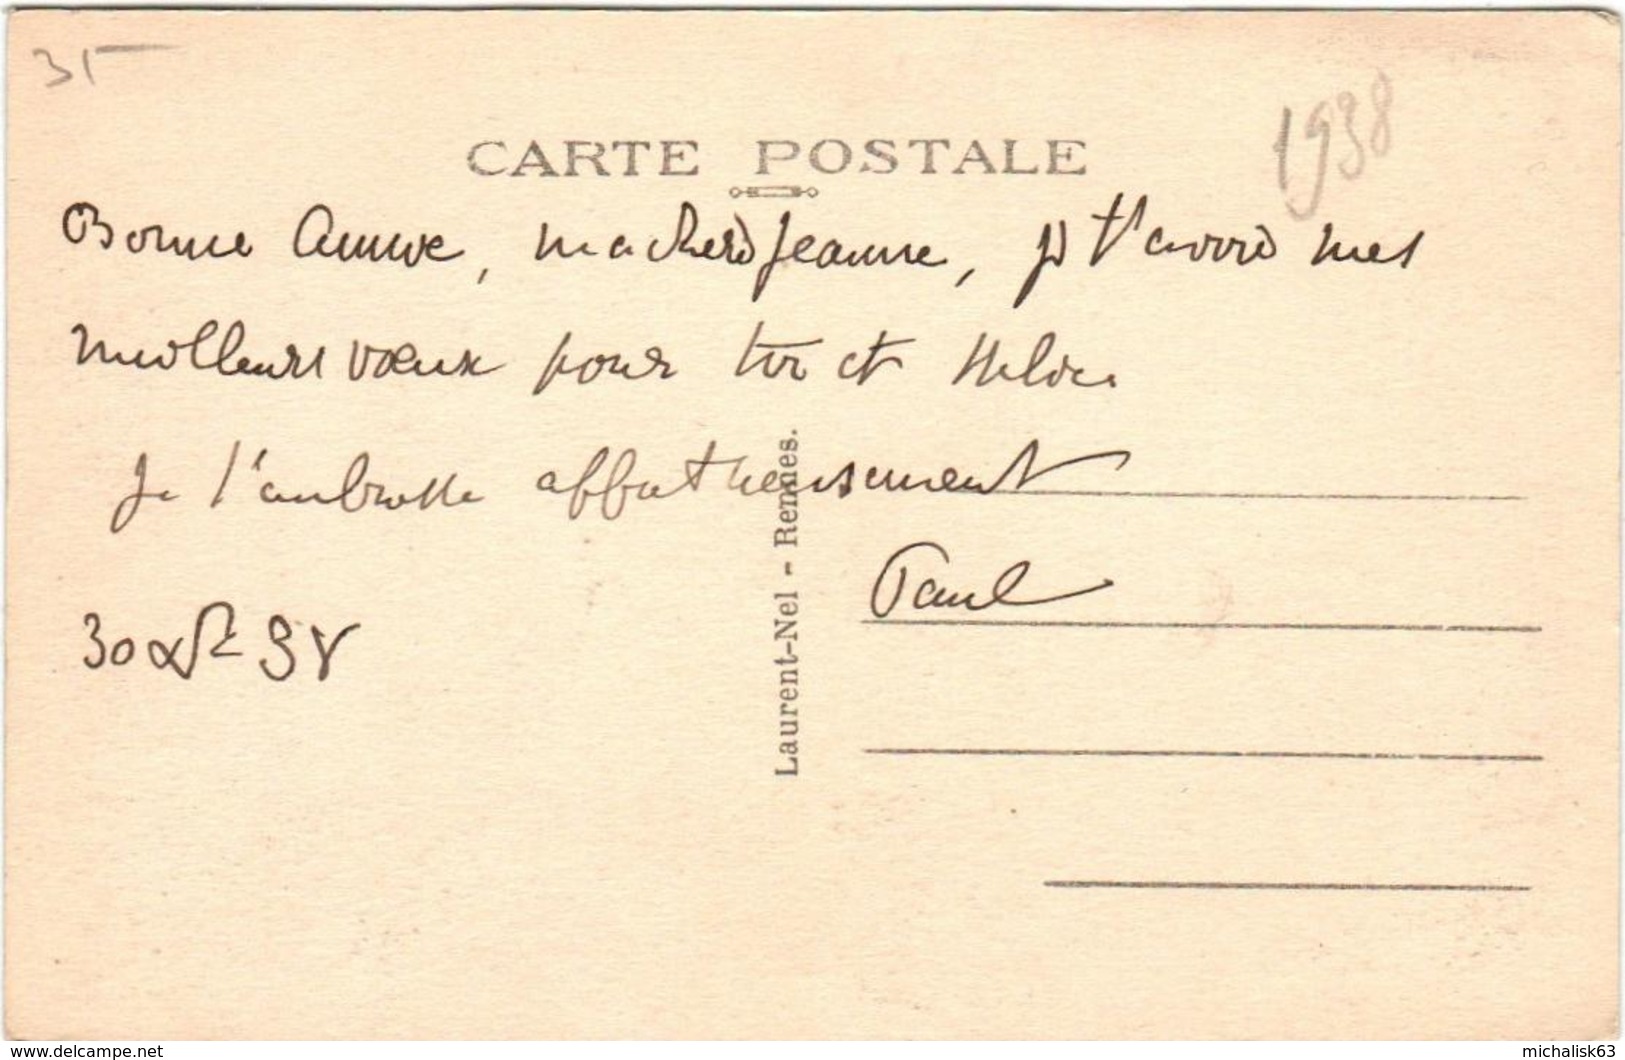 35
1938
CARTE POSTALE
Bonne Année, ma chère Jeanne, je t'envoie mes
meilleurs vœux pour toi et
Je t'embrasse affectueusement
Paul
30 38
Laurent-Nel - Rennes.
www.delcampe.net
michalisk63